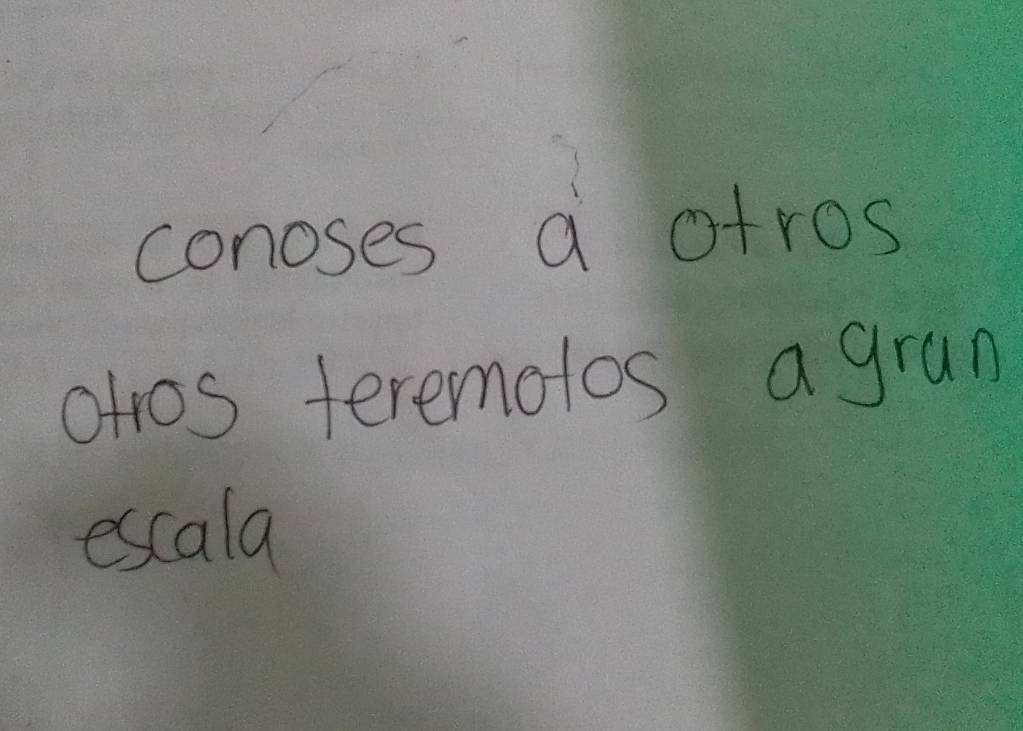 conoses a otros
otros teremotos a gran
escala